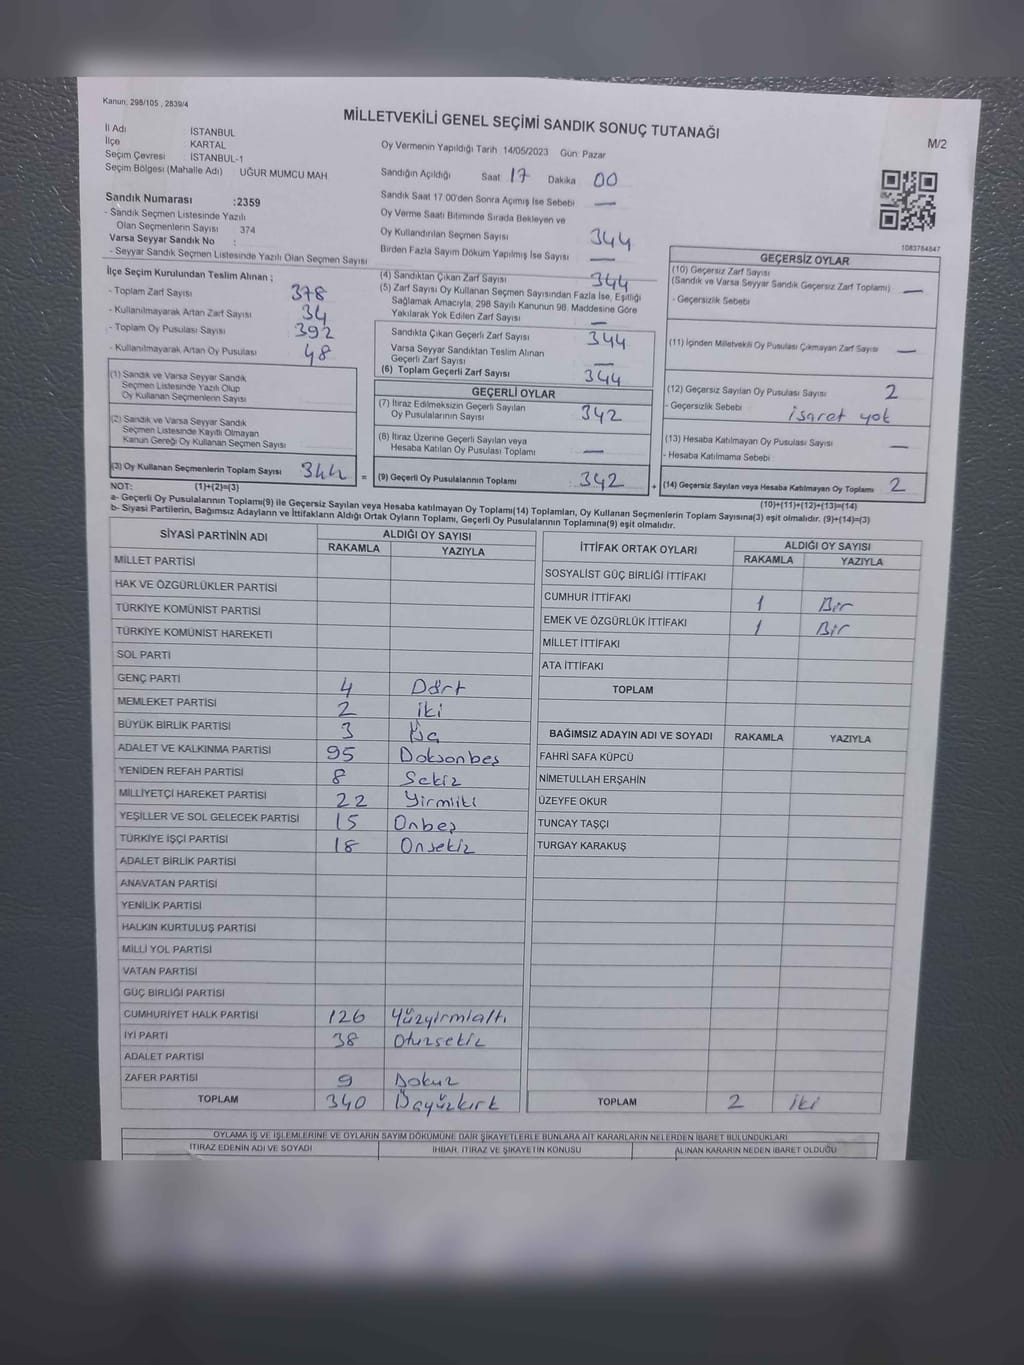 Kanun: 298/105 , 2839/4
MİLLETVEKİLİ GENEL SEÇİMİ SANDIK SONUÇ TUTANAĞI
M/2
İl Adı : İSTANBUL
İlçe : KARTAL
Seçim Çevresi : İSTANBUL-1
Seçim Bölgesi (Mahalle Adı) : UĞUR MUMCU MAH
Oy Vermenin Yapıldığı Tarih :14/05/2023 Gün: Pazar
Sandığın Açıldığı Saat 17 Dakika 00
Sandık Saat 17.00'den Sonra Açımış İse Sebebi —
Oy Verme Saati Bitiminde Sırada Bekleyen ve
Oy Kullandırılan Seçmen Sayısı 344
Birden Fazla Sayım Döküm Yapılmış İse Sayısı —
Sandık Numarası :2359
- Sandık Seçmen Listesinde Yazılı
Olan Seçmenlerin Sayısı : 374
Varsa Seyyar Sandık No :
- Seyyar Sandık Seçmen Listesinde Yazılı Olan Seçmen Sayısı
1083784847
İlçe Seçim Kurulundan Teslim Alınan ;
- Toplam Zarf Sayısı 378
- Kullanılmayarak Artan Zarf Sayısı 34
- Toplam Oy Pusulası Sayısı 392
- Kullanılmayarak Artan Oy Pusulası 48
(1) Sandık ve Varsa Seyyar Sandık
Seçmen Listesinde Yazılı Olup
Oy Kullanan Seçmenlerin Sayısı
(2) Sandık ve Varsa Seyyar Sandık
Seçmen Listesinde Kayıtlı Olmayan
Kanun Gereği Oy Kullanan Seçmen Sayısı
(3) Oy Kullanan Seçmenlerin Toplam Sayısı 344 =
(4) Sandıktan Çıkan Zarf Sayısı 344
(5) Zarf Sayısı Oy Kullanan Seçmen Sayısından Fazla İse, Eşitliği
Sağlamak Amacıyla, 298 Sayılı Kanunun 98. Maddesine Göre
Yakılarak Yok Edilen Zarf Sayısı —
Sandıkta Çıkan Geçerli Zarf Sayısı 344
Varsa Seyyar Sandıktan Teslim Alınan
Geçerli Zarf Sayısı —
(6) Toplam Geçerli Zarf Sayısı 344
GEÇERLİ OYLAR
(7) İtiraz Edilmeksizin Geçerli Sayılan
Oy Pusulalarının Sayısı : 342
(8) İtiraz Üzerine Geçerli Sayılan veya
Hesaba Katılan Oy Pusulası Toplamı : —
(9) Geçerli Oy Pusulalarının Toplamı : 342 +
GEÇERSİZ OYLAR
(10) Geçersiz Zarf Sayısı
(Sandık ve Varsa Seyyar Sandık Geçersiz Zarf Toplamı) —
- Geçersizlik Sebebi
(11) İçinden Milletvekili Oy Pusulası Çıkmayan Zarf Sayısı —
(12) Geçersiz Sayılan Oy Pusulası Sayısı 2
- Geçersizlik Sebebi : işaret yok
(13) Hesaba Katılmayan Oy Pusulası Sayısı —
- Hesaba Katılmama Sebebi
(14) Geçersiz Sayılan veya Hesaba Katılmayan Oy Toplamı 2
NOT: (1)+(2)=(3) (10)+(11)+(12)+(13)=(14)
a- Geçerli Oy Pusulalarının Toplamı(9) ile Geçersiz Sayılan veya Hesaba katılmayan Oy Toplamı(14) Toplamları, Oy Kullanan Seçmenlerin Toplam Sayısına(3) eşit olmalıdır. (9)+(14)=(3)
b- Siyasi Partilerin, Bağımsız Adayların ve İttifakların Aldığı Ortak Oyların Toplamı, Geçerli Oy Pusulalarının Toplamına(9) eşit olmalıdır.
SİYASİ PARTİNİN ADI ALDIĞI OY SAYISI
RAKAMLA YAZIYLA
MİLLET PARTİSİ
HAK VE ÖZGÜRLÜKLER PARTİSİ
TÜRKİYE KOMÜNİST PARTİSİ
TÜRKİYE KOMÜNİST HAREKETİ
SOL PARTİ
GENÇ PARTİ 4 Dört
MEMLEKET PARTİSİ 2 iki
BÜYÜK BİRLİK PARTİSİ 3 Üç
ADALET VE KALKINMA PARTİSİ 95 Doksanbeş
YENİDEN REFAH PARTİSİ 8 Sekiz
MİLLİYETÇİ HAREKET PARTİSİ 22 Yirmiiki
YEŞİLLER VE SOL GELECEK PARTİSİ 15 Onbeş
TÜRKİYE İŞÇİ PARTİSİ 18 Onsekiz
ADALET BİRLİK PARTİSİ
ANAVATAN PARTİSİ
YENİLİK PARTİSİ
HALKIN KURTULUŞ PARTİSİ
MİLLİ YOL PARTİSİ
VATAN PARTİSİ
GÜÇ BİRLİĞİ PARTİSİ
CUMHURİYET HALK PARTİSİ 126 Yüzyirmialtı
İYİ PARTİ 38 Otuzsekiz
ADALET PARTİSİ
ZAFER PARTİSİ 9 Dokuz
TOPLAM 340 Üçyüzkırk
İTTİFAK ORTAK OYLARI ALDIĞI OY SAYISI
RAKAMLA YAZIYLA
SOSYALİST GÜÇ BİRLİĞİ İTTİFAKI
CUMHUR İTTİFAKI 1 Bir
EMEK VE ÖZGÜRLÜK İTTİFAKI 1 Bir
MİLLET İTTİFAKI
ATA İTTİFAKI
TOPLAM
BAĞIMSIZ ADAYIN ADI VE SOYADI RAKAMLA YAZIYLA
FAHRİ SAFA KÜPCÜ
NİMETULLAH ERŞAHİN
ÜZEYFE OKUR
TUNCAY TAŞÇI
TURGAY KARAKUŞ
TOPLAM 2 iki
OYLAMA İŞ VE İŞLEMLERİNE VE OYLARIN SAYIM DÖKÜMÜNE DAİR ŞİKAYETLERLE BUNLARA AİT KARARLARIN NELERDEN İBARET BULUNDUKLARI
İTİRAZ EDENİN ADI VE SOYADI İHBAR, İTİRAZ VE ŞİKAYETİN KONUSU ALINAN KARARIN NEDEN İBARET OLDUĞU